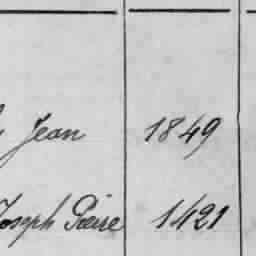 Jean 1849
Joseph Pierre 1421